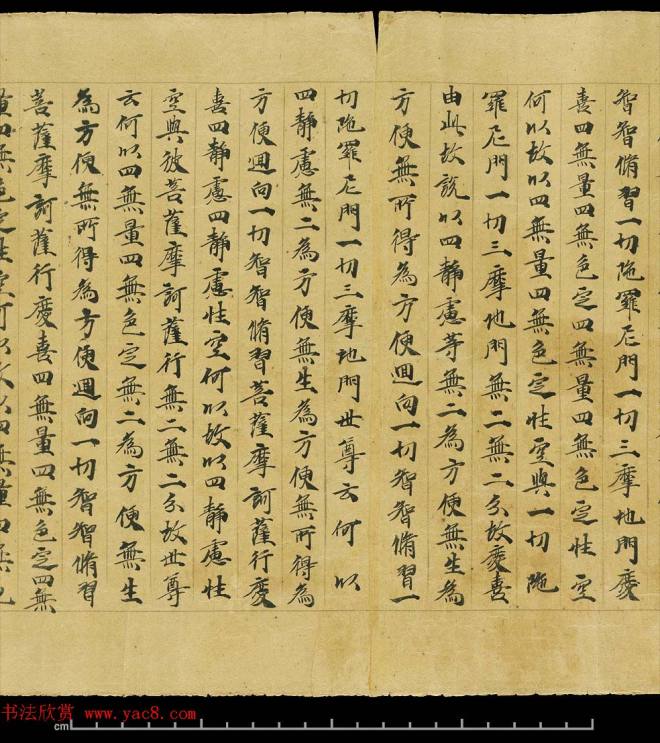 智智脩習一切陁羅尼門一切三摩地門慶
喜四無量四無色定四無量四無色定性空
何以故以四無量四無色定性空與一切陁
羅尼門一切三摩地門無二無二分故慶喜
由此故說以四靜慮等無二為方便無生為
方便無所得為方便迴向一切智智脩習一
切陁羅尼門一切三摩地門世尊云何以
四靜慮無二為方便無生為方便無所得為
方便迴向一切智智脩習菩薩摩訶薩行慶
喜四靜慮四靜慮性空何以故以四靜慮性
空與彼菩薩摩訶薩行無二無二分故世尊
云何以四無量四無色定無二為方便無生
為方便無所得為方便迴向一切智智脩習
菩薩摩訶薩行慶喜四無量四無色定四無
量四無色定性空何以故以四無量四無色
书法欣赏 www.yac8.com
cm